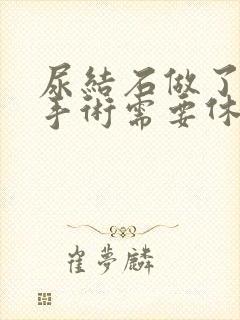 尿結石做了
手術需要休
崔夢麟